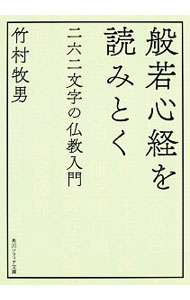 般若心経を
読みとく
二六二文字の仏教入門
竹村牧男
角川ソフィア文庫